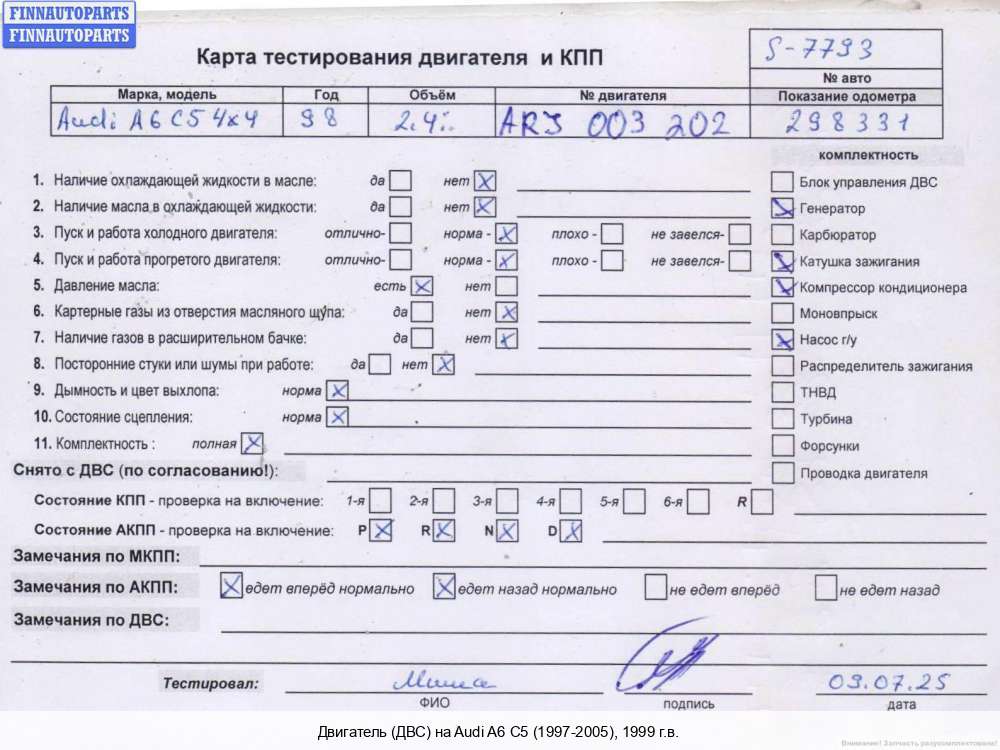 FINNAUTOPARTS
FINNAUTOPARTS
Карта тестирования двигателя и КПП
S-7793
№ авто
Марка, модель Год Объём № двигателя Показание одометра
Audi A6 C5 4x4 98 2.4i. ARJ 003 202 298331
комплектность
1. Наличие охлаждающей жидкости в масле: да нет Блок управления ДВС
2. Наличие масла в охлаждающей жидкости: да нет Генератор
3. Пуск и работа холодного двигателя: отлично- норма - плохо - не завелся- Карбюратор
4. Пуск и работа прогретого двигателя: отлично- норма - плохо - не завелся- Катушка зажигания
5. Давление масла: есть нет Компрессор кондиционера
6. Картерные газы из отверстия масляного щупа: да нет Моновпрыск
7. Наличие газов в расширительном бачке: да нет Насос г/у
8. Посторонние стуки или шумы при работе: да нет Распределитель зажигания
9. Дымность и цвет выхлопа: норма ТНВД
10. Состояние сцепления: норма Турбина
11. Комплектность : полная Форсунки
Снято с ДВС (по согласованию!): Проводка двигателя
Состояние КПП - проверка на включение: 1-я 2-я 3-я 4-я 5-я 6-я R
Состояние АКПП - проверка на включение: P R N D
Замечания по МКПП:
Замечания по АКПП: едет вперёд нормально едет назад нормально не едет вперёд не едет назад
Замечания по ДВС:
Тестировал: Миша 09.07.25
ФИО подпись дата
Двигатель (ДВС) на Audi A6 C5 (1997-2005), 1999 г.в.
Внимание! Запчасть разукомплектована!